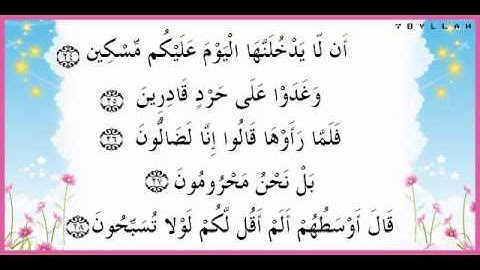 7BYLLAH
أَن لَّا يَدْخُلَنَّهَا الْيَوْمَ عَلَيْكُم مِّسْكِين ٢٤
وَغَدَوْا عَلَى حَرْدٍ قَادِرِينَ ٢٥
فَلَمَّا رَأَوْهَا قَالُوا إِنَّا لَضَالُّونَ ٢٦
بَلْ نَحْنُ مَحْرُومُونَ ٢٧
قَالَ أَوْسَطُهُمْ أَلَمْ أَقُل لَّكُمْ لَوْلَا تُسَبِّحُونَ ٢٨